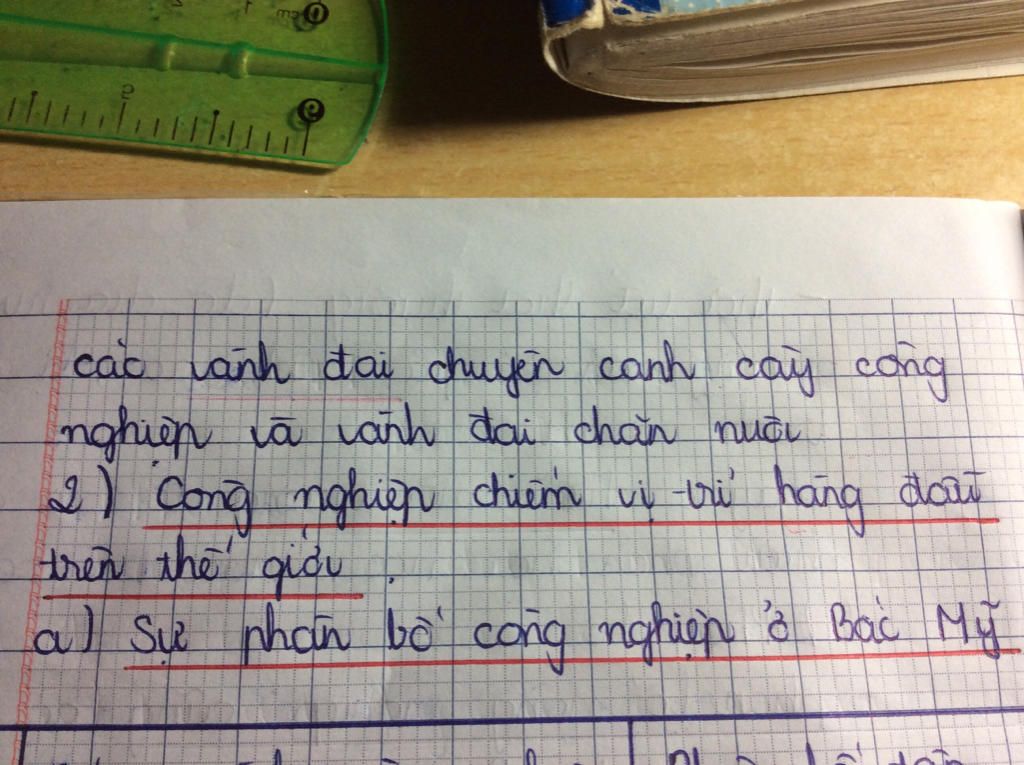 cm 1 2 0
9 9
các vành đai chuyên canh cây công
nghiệp và vành đai chăn nuôi
2) Công nghiệp chiếm vị trí hàng đầu
trên thế giới.
a) Sự phân bố công nghiệp ở Bắc Mỹ